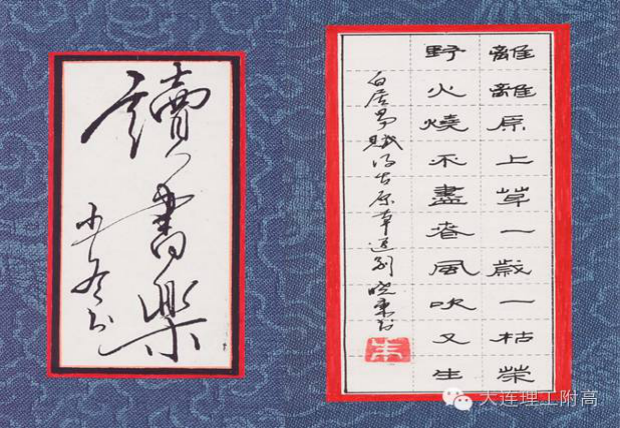 讀書樂
離離原上草一歲一枯榮
野火燒不盡春風吹又生
白居易賦得古原草送别
大连理工附高